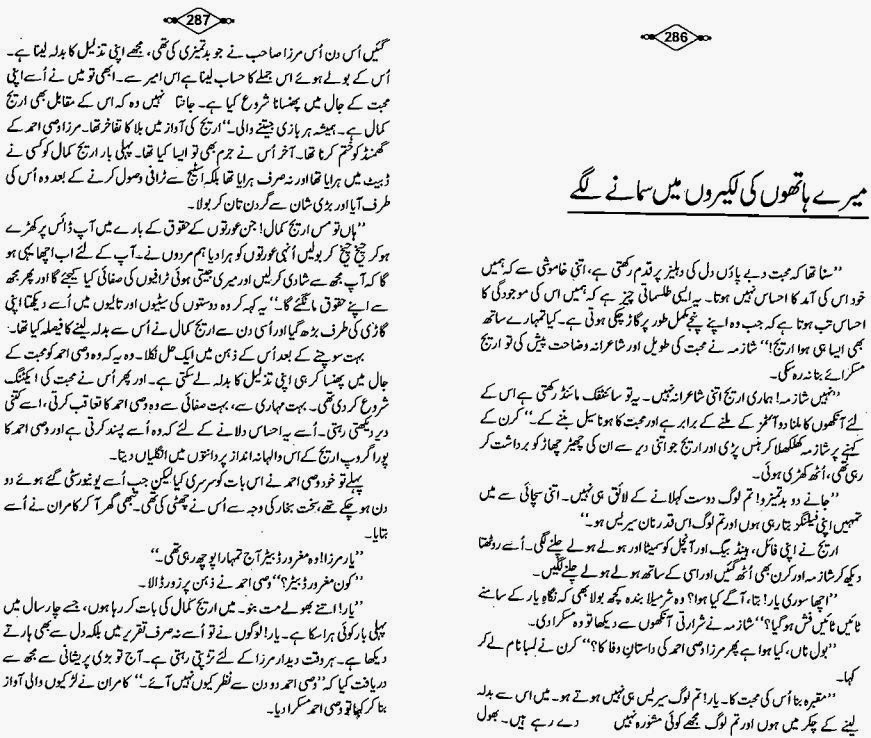 286
میرے ہاتھوں کی لکیروں میں سمانے لگے
’’سنا تھا کہ محبت دبے پاؤں دل کی دہلیز پر قدم رکھتی ہے، اتنی خاموشی سے کہ ہمیں
خود اس کی آمد کا احساس نہیں ہوتا۔ یہ ایسی طلسماتی چیز ہے کہ ہمیں اس کی موجودگی کا
احساس تب ہوتا ہے کہ جب وہ اپنے پنجے مکمل طور پر گاڑ چکی ہوتی ہے۔ کیا تمہارے ساتھ
بھی ایسا ہی ہوا اریج!‘‘ شازمہ نے محبت کی طویل اور شاعرانہ وضاحت پیش کی تو اریج
مسکرائے بنا نہ رہ سکی۔
’’نہیں شازمہ! ہماری اریج اتنی شاعرانہ نہیں۔ یہ تو سائنٹفک مائنڈ رکھتی ہے اس کے
لئے آنکھوں کا ملنا دو آسٹمز کے ملنے کے برابر ہے اور محبت کا ہونا سیل بننے کے۔‘‘ کرن کے
کہنے پر شازمہ کھلکھلا کر ہنس پڑی اور اریج جو اتنی دیر سے ان کی چھیڑ چھاڑ کو برداشت کر
رہی تھی، اُٹھ کھڑی ہوئی۔
’’جانے دو بدتمیزو! تم لوگ دوست کہلانے کے لائق ہی نہیں۔ اتنی سچائی سے میں
تمہیں اپنی فیلنگز بتا رہی ہوں اور تم لوگ اس قدر نان سیریس ہو۔‘‘
اریج نے اپنی فائل، ہینڈ بیگ اور آنچل کو سمیٹا اور ہولے ہولے چلنے لگی۔ اُسے روٹھتا
دیکھ کر شازمہ اور کرن بھی اُٹھ گئیں اور اسی کے ساتھ ہولے ہولے چلنے لگیں۔
’’اچھا سوری یار! بتا، آگے کیا ہوا؟ وہ شرمیلا بندہ کچھ بولا بھی کہ نگاہِ یار کے سامنے
ٹائیں ٹائیں فش ہو گیا؟‘‘ شازمہ نے شرارتی آنکھوں سے دیکھا تو وہ مسکرا دی۔
’’بول ناں، کیا ہوا ہے پھر مرزا وصی احمد کی داستانِ وفا کا؟‘‘ کرن نے لمبا نام لے کر
کہا۔
’’مقبرہ بنا اُس کی محبت کا۔ یار! تم لوگ سیریس ہی نہیں ہوتے ہو۔ میں اس سے بدلہ
لینے کے چکر میں ہوں اور تم لوگ مجھے کوئی مشورہ نہیں دے رہے ہیں۔ بھول
287
گئیں اُس دن اُس مرزا صاحب نے جو بدتمیزی کی تھی، مجھے اپنی تذلیل کا بدلہ لینا ہے۔
اُس کے بولے ہوئے اس جملے کا حساب لینا ہے اس امیر سے۔ ابھی تو میں نے اُسے اپنی
محبت کے جال میں پھنسانا شروع کیا ہے۔ جانتا نہیں وہ کہ اس کے مقابل بھی اریج
کمال ہے۔ ہمیشہ ہر بازی جیتنے والی۔‘‘ اریج کی آواز میں بلا کا تفاخر تھا۔ مرزا وصی احمد کے
گھمنڈ کو ختم کرنا تھا۔ آخر اُس نے جرم بھی تو ایسا کیا تھا۔ پہلی بار اریج کمال کو کسی نے
ڈبیٹ میں ہرایا تھا اور نہ صرف ہرایا تھا بلکہ اسٹیج سے ٹرافی وصول کرنے کے بعد وہ اُس کی
طرف آیا اور بڑی شان سے گردن تان کر بولا۔
’’ہاں تو مس اریج کمال! جن عورتوں کے حقوق کے بارے میں آپ ڈائس پر کھڑے
ہو کر چیخ چیخ کر بولیں اُنہی عورتوں کو ہرا دیا ہم مردوں نے۔ آپ کے لئے اب اچھا یہی ہو
گا کہ آپ مجھ سے شادی کر لیں اور میری جیتی ہوئی ٹرافیوں کی صفائی کیا کیجئے گا اور پھر مجھ
سے اپنے حقوق مانگئے گا۔‘‘ یہ کہہ کر وہ دوستوں کی سیٹیوں اور تالیوں میں اُسے دیکھتا اپنی
گاڑی کی طرف بڑھ گیا اور اُسی دن سے اریج کمال نے اُس سے بدلہ لینے کا فیصلہ کیا تھا۔
بہت سوچنے کے بعد اُس کے ذہن میں ایک حل نکلا۔ وہ یہ کہ وہ وصی احمد کو محبت کے
جال میں پھنسا کر ہی اپنی تذلیل کا بدلہ لے سکتی ہے۔ اور پھر اُس نے محبت کی ایکٹنگ
شروع کر دی تھی۔ بہت مہاری سے، بہت صفائی سے وہ وصی احمد کا تعاقب کرتی، اسے کتنی
دیر دیکھتی رہتی۔ اُسے یہ احساس دلانے کے لئے کہ وہ اُسے پسند کرتی ہے اور وصی احمد کا
پورا گروپ اریج کے اس والہانہ انداز پر دانتوں میں انگلیاں دیتا۔
پہلے تو خود وصی احمد نے اس بات کو سرسری کیا لیکن جب اُسے یونیورسٹی گئے ہوئے دو
دن ہو چکے تھے، سخت بخار کی وجہ سے اُس نے چھٹی کی تھی۔ تبھی گھر آ کر کامران نے اُسے
بتایا۔
’’یار مرزا! وہ مغرور ڈبیٹر آج تمہارا پوچھ رہی تھی۔‘‘
’’کون مغرور ڈبیٹر؟‘‘ وصی احمد نے ذہن پر زور ڈالا۔
’’یار! اتنے بھولے مت بنو۔ میں اریج کمال کی بات کر رہا ہوں، جسے چار سال میں
پہلی بار کوئی ہرا سکا ہے۔ یار! لوگوں نے تو اُسے نہ صرف تقریر میں بلکہ دل سے بھی ہارتے
دیکھا ہے۔ ہر وقت دیدارِ مرزا کے لئے تڑپتی رہتی ہے۔ آج تو بڑی پریشانی سے مجھ سے
دریافت کیا کہ ’’وصی احمد دو دن سے نظر کیوں نہیں آئے۔‘‘ کامران نے لڑکیوں والی آواز
بنا کر کہا تو وصی احمد مسکرا دیا۔